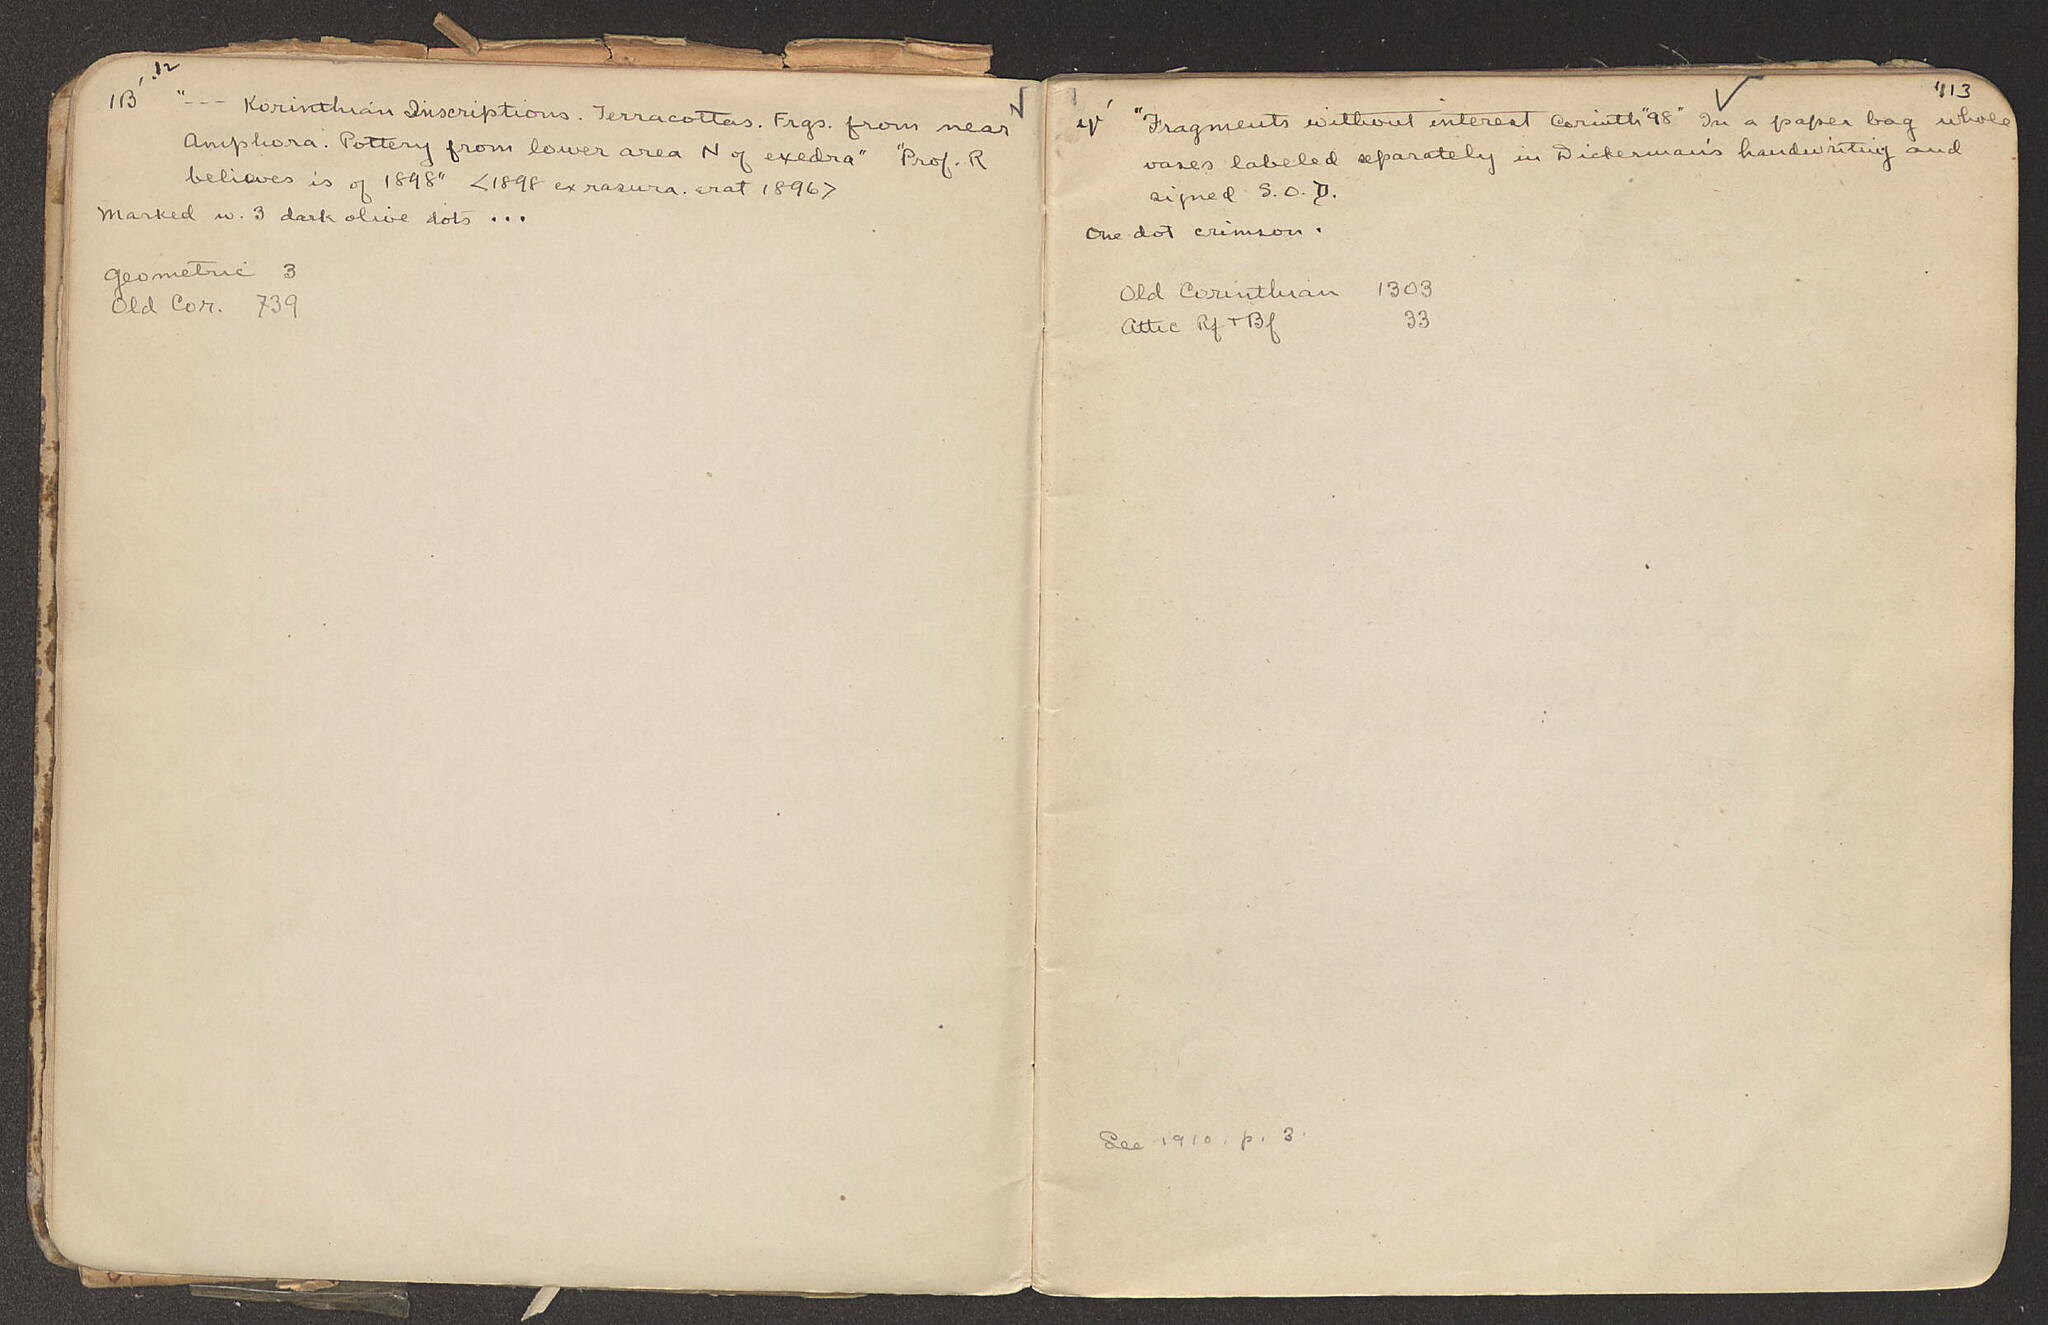 12
ΙΒ' "--- Korinthian Inscriptions. Terracottas. Frgs. from near
Amphora. Pottery from lower area N of exedra" "Prof. R
believes is of 1898" <1898 ex rasura. erat 1896>
Marked w. 3 dark olive dots ...
Geometric 3
Old Cor. 739
113
ιγ' "Fragments without interest Corinth "98" In a paper bag whole
vases labeled separately in Dickerman's handwriting and
signed S.O.D.
One dot crimson .
Old Corinthian 1303
Attic Rf + Bf 33
See 1910. p. 3.